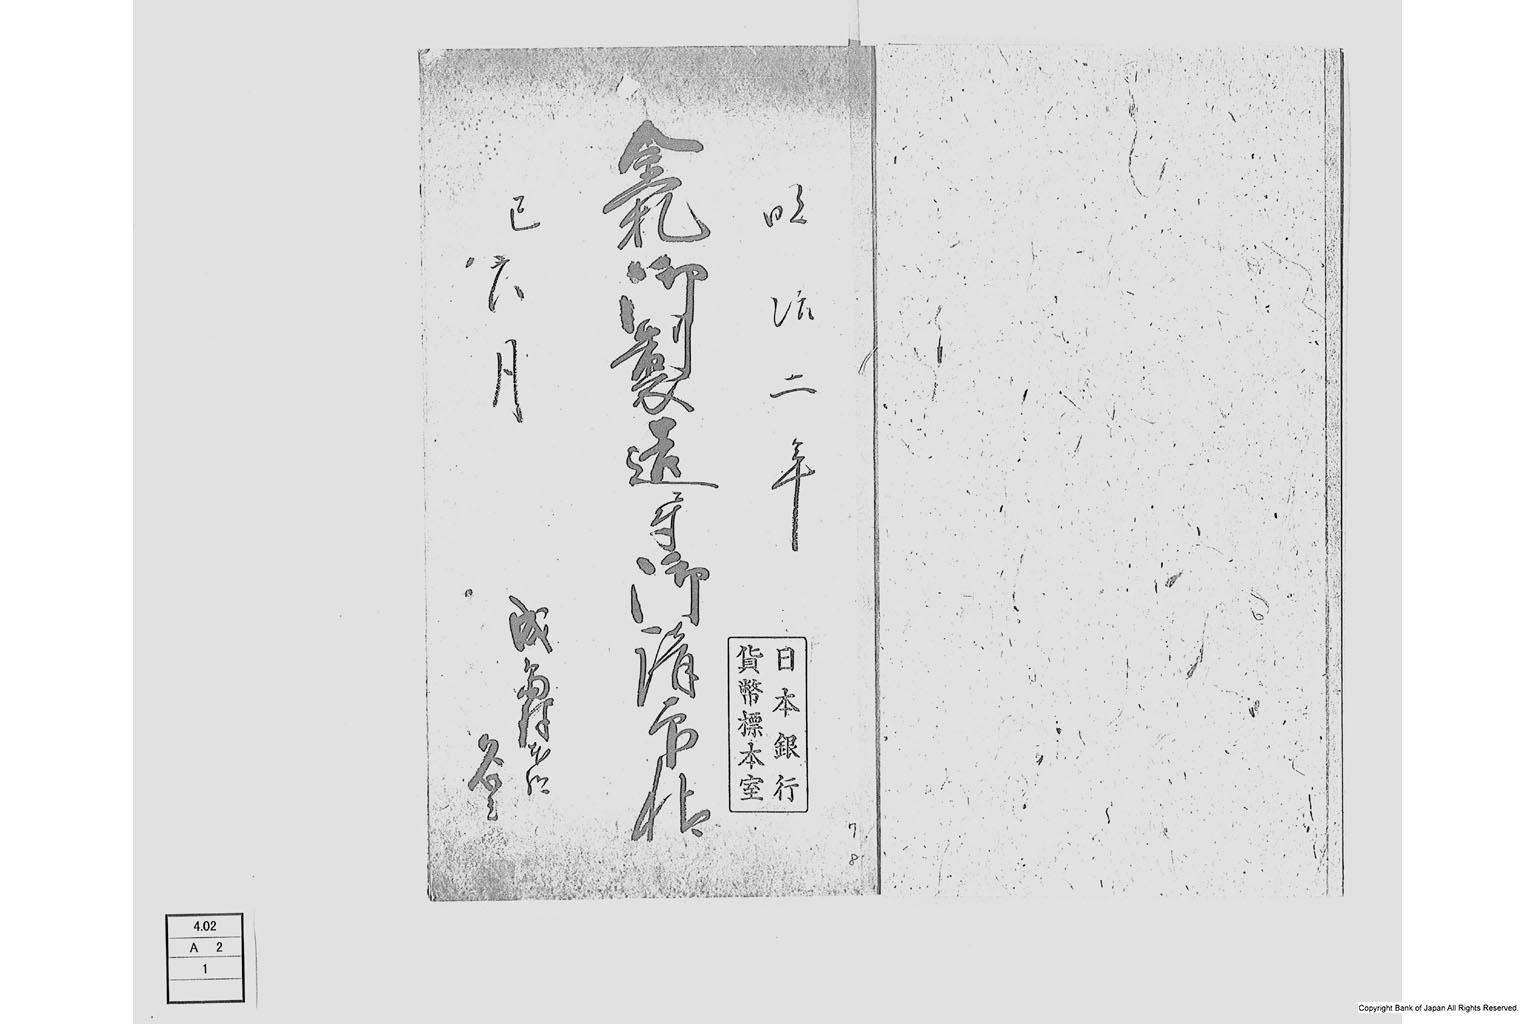 明治二年
金札御製造ニ付御請印帖
巳六月
日本銀行
貨幣標本室
7
8
4.02
A 2
1
Copyright Bank of Japan All Rights Reserved.